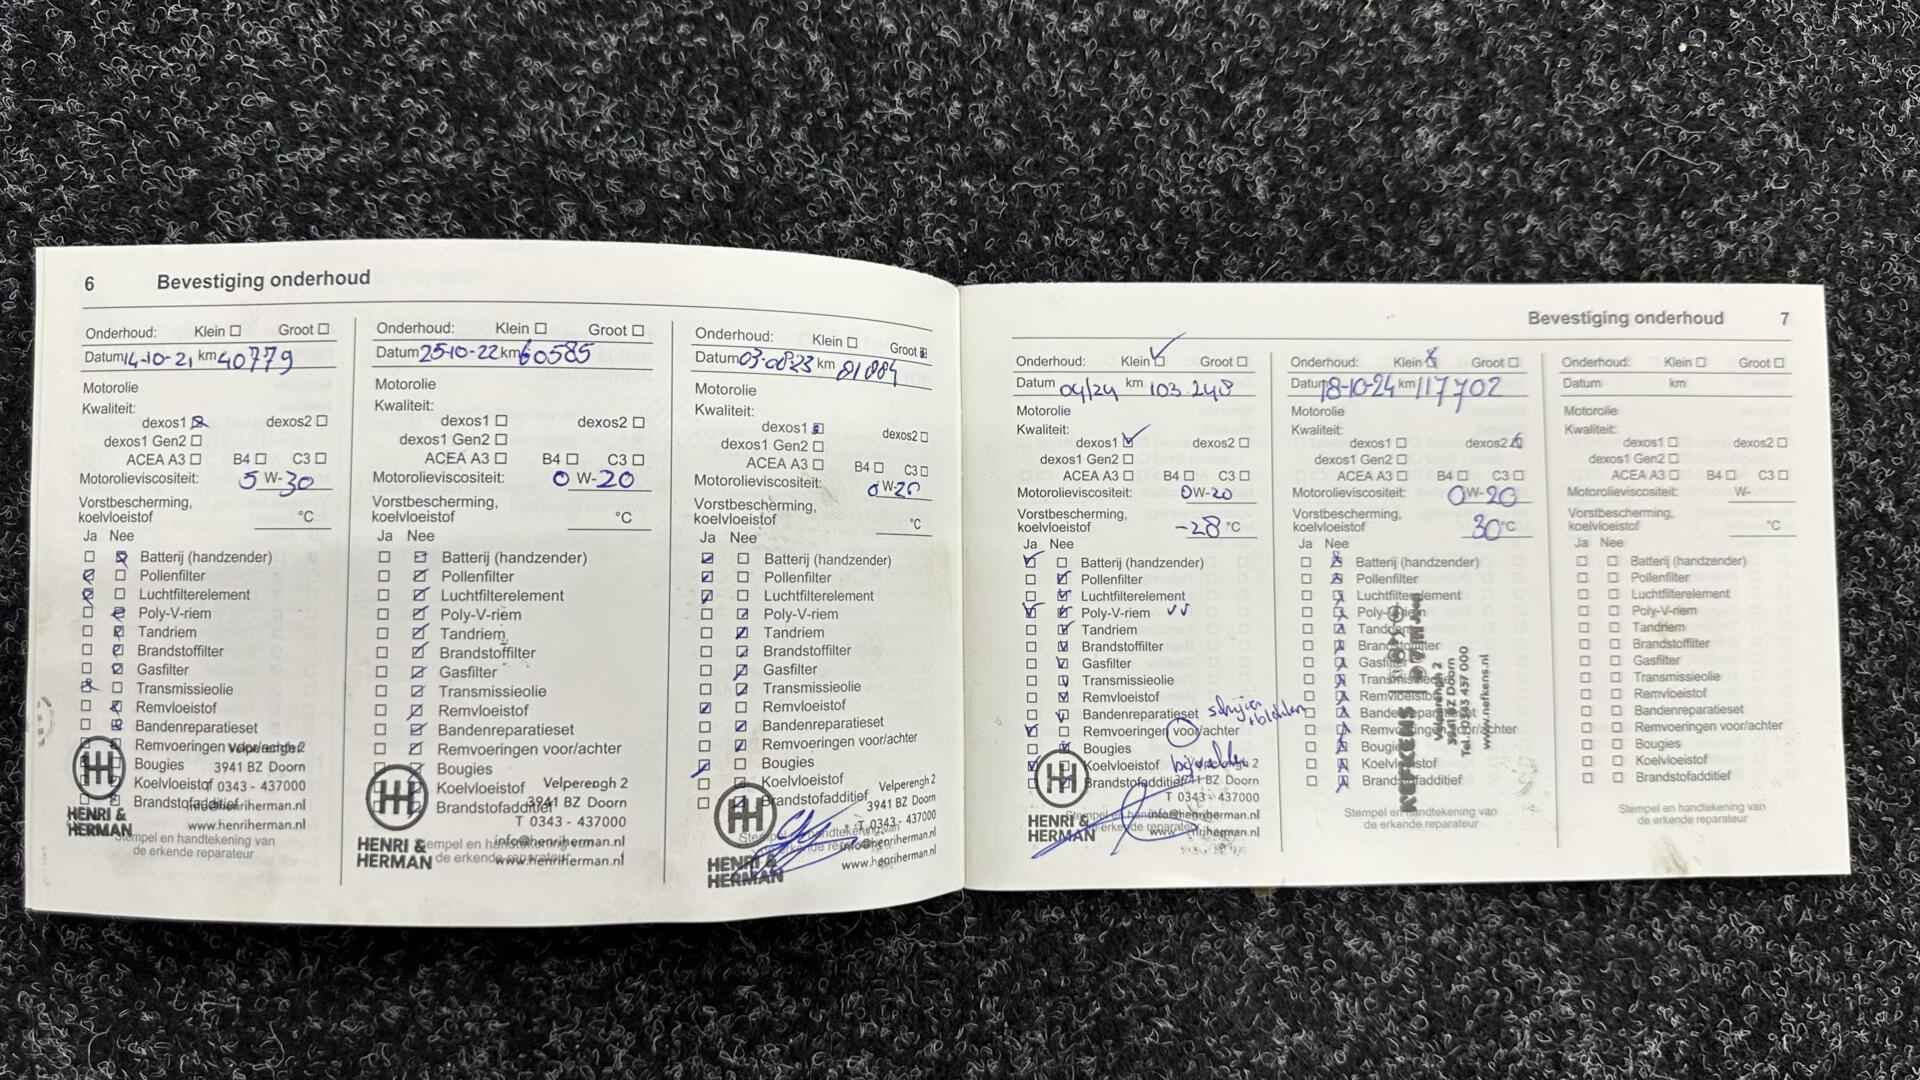 6 Bevestiging onderhoud
Onderhoud: Klein Groot
Datum 14-10-21 km 40779
Motorolie
Kwaliteit:
dexos1 dexos2
dexos1 Gen2
ACEA A3 B4 C3
Motorolieviscositeit: 5 W-30
Vorstbescherming,
koelvloeistof °C
Ja Nee
Batterij (handzender)
Pollenfilter
Luchtfilterelement
Poly-V-riem
Tandriem
Brandstoffilter
Gasfilter
Transmissieolie
Remvloeistof
Bandenreparatieset
Remvoeringen voor/achter
Bougies
Koelvloeistof
Brandstofadditief
Stempel en handtekening van
de erkende reparateur
HENRI &
HERMAN
Velperengh 2
3941 BZ Doorn
T 0343 - 437000
info@henriherman.nl
www.henriherman.nl
Onderhoud: Klein Groot
Datum 25-10-22 km 60585
Motorolie
Kwaliteit:
dexos1 dexos2
dexos1 Gen2
ACEA A3 B4 C3
Motorolieviscositeit: 0 W-20
Vorstbescherming,
koelvloeistof °C
Ja Nee
Batterij (handzender)
Pollenfilter
Luchtfilterelement
Poly-V-riem
Tandriem
Brandstoffilter
Gasfilter
Transmissieolie
Remvloeistof
Bandenreparatieset
Remvoeringen voor/achter
Bougies
Koelvloeistof
Brandstofadditief
Stempel en handtekening van
de erkende reparateur
HENRI &
HERMAN
Velperengh 2
3941 BZ Doorn
T 0343 - 437000
info@henriherman.nl
www.henriherman.nl
Onderhoud: Klein Groot
Datum 03-08-23 km 81884
Motorolie
Kwaliteit:
dexos1 dexos2
dexos1 Gen2
ACEA A3 B4 C3
Motorolieviscositeit: 0 W-20
Vorstbescherming,
koelvloeistof °C
Ja Nee
Batterij (handzender)
Pollenfilter
Luchtfilterelement
Poly-V-riem
Tandriem
Brandstoffilter
Gasfilter
Transmissieolie
Remvloeistof
Bandenreparatieset
Remvoeringen voor/achter
Bougies
Koelvloeistof
Brandstofadditief
Stempel en handtekening van
de erkende reparateur
HENRI &
HERMAN
Velperengh 2
3941 BZ Doorn
T 0343 - 437000
info@henriherman.nl
www.henriherman.nl
Bevestiging onderhoud 7
Onderhoud: Klein Groot
Datum 04/24 km 103.248
Motorolie
Kwaliteit:
dexos1 dexos2
dexos1 Gen2
ACEA A3 B4 C3
Motorolieviscositeit: 0 W-20
Vorstbescherming,
koelvloeistof -28 °C
Ja Nee
Batterij (handzender)
Pollenfilter
Luchtfilterelement
Poly-V-riem
Tandriem
Brandstoffilter
Gasfilter
Transmissieolie
Remvloeistof
Bandenreparatieset schijven
Remvoeringen voor/achter
Bougies
Koelvloeistof
Brandstofadditief
erkende reparateur
HENRI &
HERMAN
3941 BZ Doorn
T 0343 - 437000
info@henriherman.nl
Onderhoud: Klein Groot
Datum 18-10-24 km 117702
Motorolie
Kwaliteit:
dexos1 dexos2
dexos1 Gen2
ACEA A3 B4 C3
Motorolieviscositeit: 0 W-20
Vorstbescherming,
koelvloeistof 30 °C
Ja Nee
Batterij (handzender)
Pollenfilter
Luchtfilterelement
Poly-V-riem
Tandriem
Brandstoffilter
Gasfilter
Transmissieolie
Remvloeistof
Bandenreparatieset
Remvoeringen voor/achter
Bougies
Koelvloeistof
Brandstofadditief
Stempel en handtekening van
de erkende reparateur
NEFKENS
Velperengh 2
3941 BZ Doorn
Tel. 0343 437 000
www.nefkens.nl
Onderhoud: Klein Groot
Datum km
Motorolie
Kwaliteit:
dexos1 dexos2
dexos1 Gen2
ACEA A3 B4 C3
Motorolieviscositeit: W-
Vorstbescherming,
koelvloeistof °C
Ja Nee
Batterij (handzender)
Pollenfilter
Luchtfilterelement
Poly-V-riem
Tandriem
Brandstoffilter
Gasfilter
Transmissieolie
Remvloeistof
Bandenreparatieset
Remvoeringen voor/achter
Bougies
Koelvloeistof
Brandstofadditief
Stempel en handtekening van
de erkende reparateur